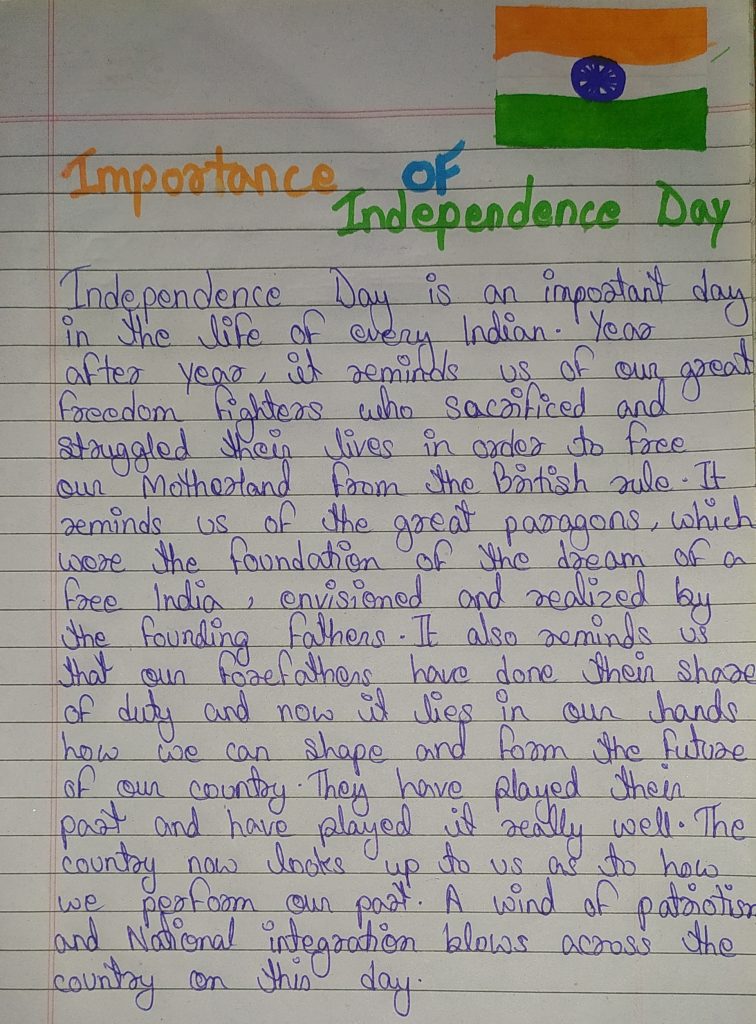 Importance of
Independence Day
Independence Day is an important day
in the life of every Indian. Year
after year, it reminds us of our great
freedom fighters who sacrificed and
struggled their lives in order to free
our Motherland from the British rule. It
reminds us of the great paragons, which
were the foundation of the dream of a
free India, envisioned and realized by
the founding fathers. It also reminds us
that our forefathers have done their share
of duty and now it lies in our hands
how we can shape and form the future
of our country. They have played their
part and have played it really well. The
country now looks up to us as to how
we perform our part. A wind of patriotism
and National integration blows across the
country on this day.